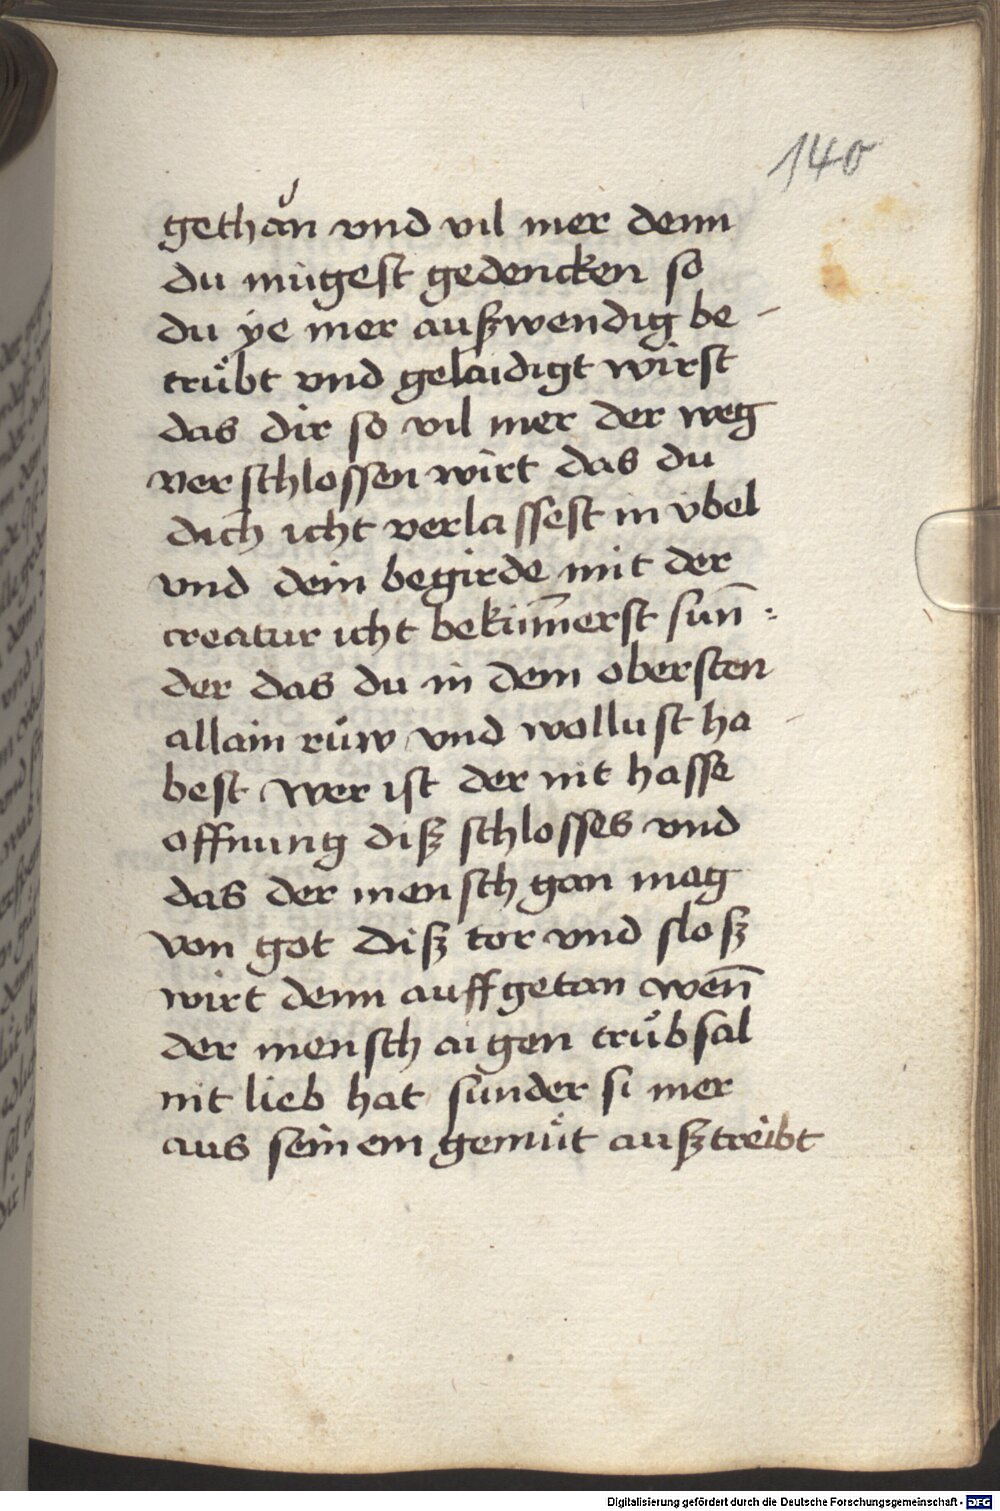 140
gethan vnd vil mer denn
du mügest gedencken so
du ÿe mer außwendig be -
trübt vnd gelaidigt wirst
das dir so vil mer der weg
verschlossen wirt das du
dich icht verlassest in vbel
vnd dein begirde mit der
creatur icht bekūmerst sun̄ :
der das du in dem obersten
allain ruͤw vnd wollust ha -
best wer ist der nit hasse
offnung diß schlosses vnd
das der mensch gan mag
von got diß tor vnd sloß
wirt denn auffgetan wen̄
der mensch aigen truͤbsal
nit lieb hat sunder si mer
aus seinem gemuͤt außtreibt
Digitalisierung gefördert durch die Deutsche Forschungsgemeinschaft - DFG